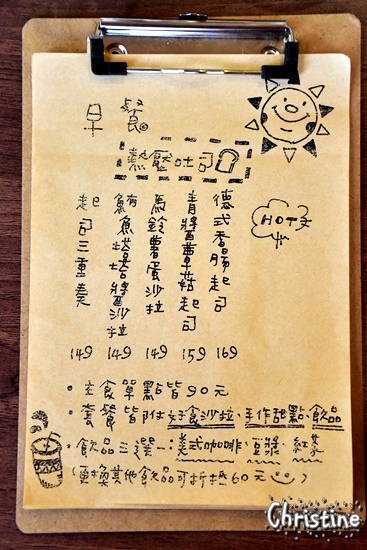 早餐
熱壓吐司
HOT
德式香腸起司 169
青醬蘑菇起司 159
馬鈴薯蛋沙拉 149
鮪魚塔塔醬沙拉 149
起司三重奏 149
・主食單點皆90元
・套餐皆附好食沙拉、手作甜點、飲品
・飲品三選一：美式咖啡、豆漿、紅茶
(更換其他飲品可折抵60元)
Christine